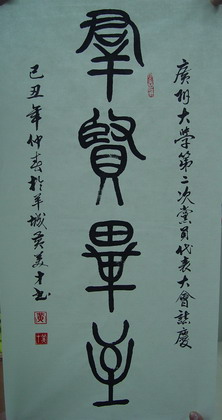 廣州大學第二次黨員代表大會誌慶
羣賢畢至
己丑年仲春於羊城黃美才書